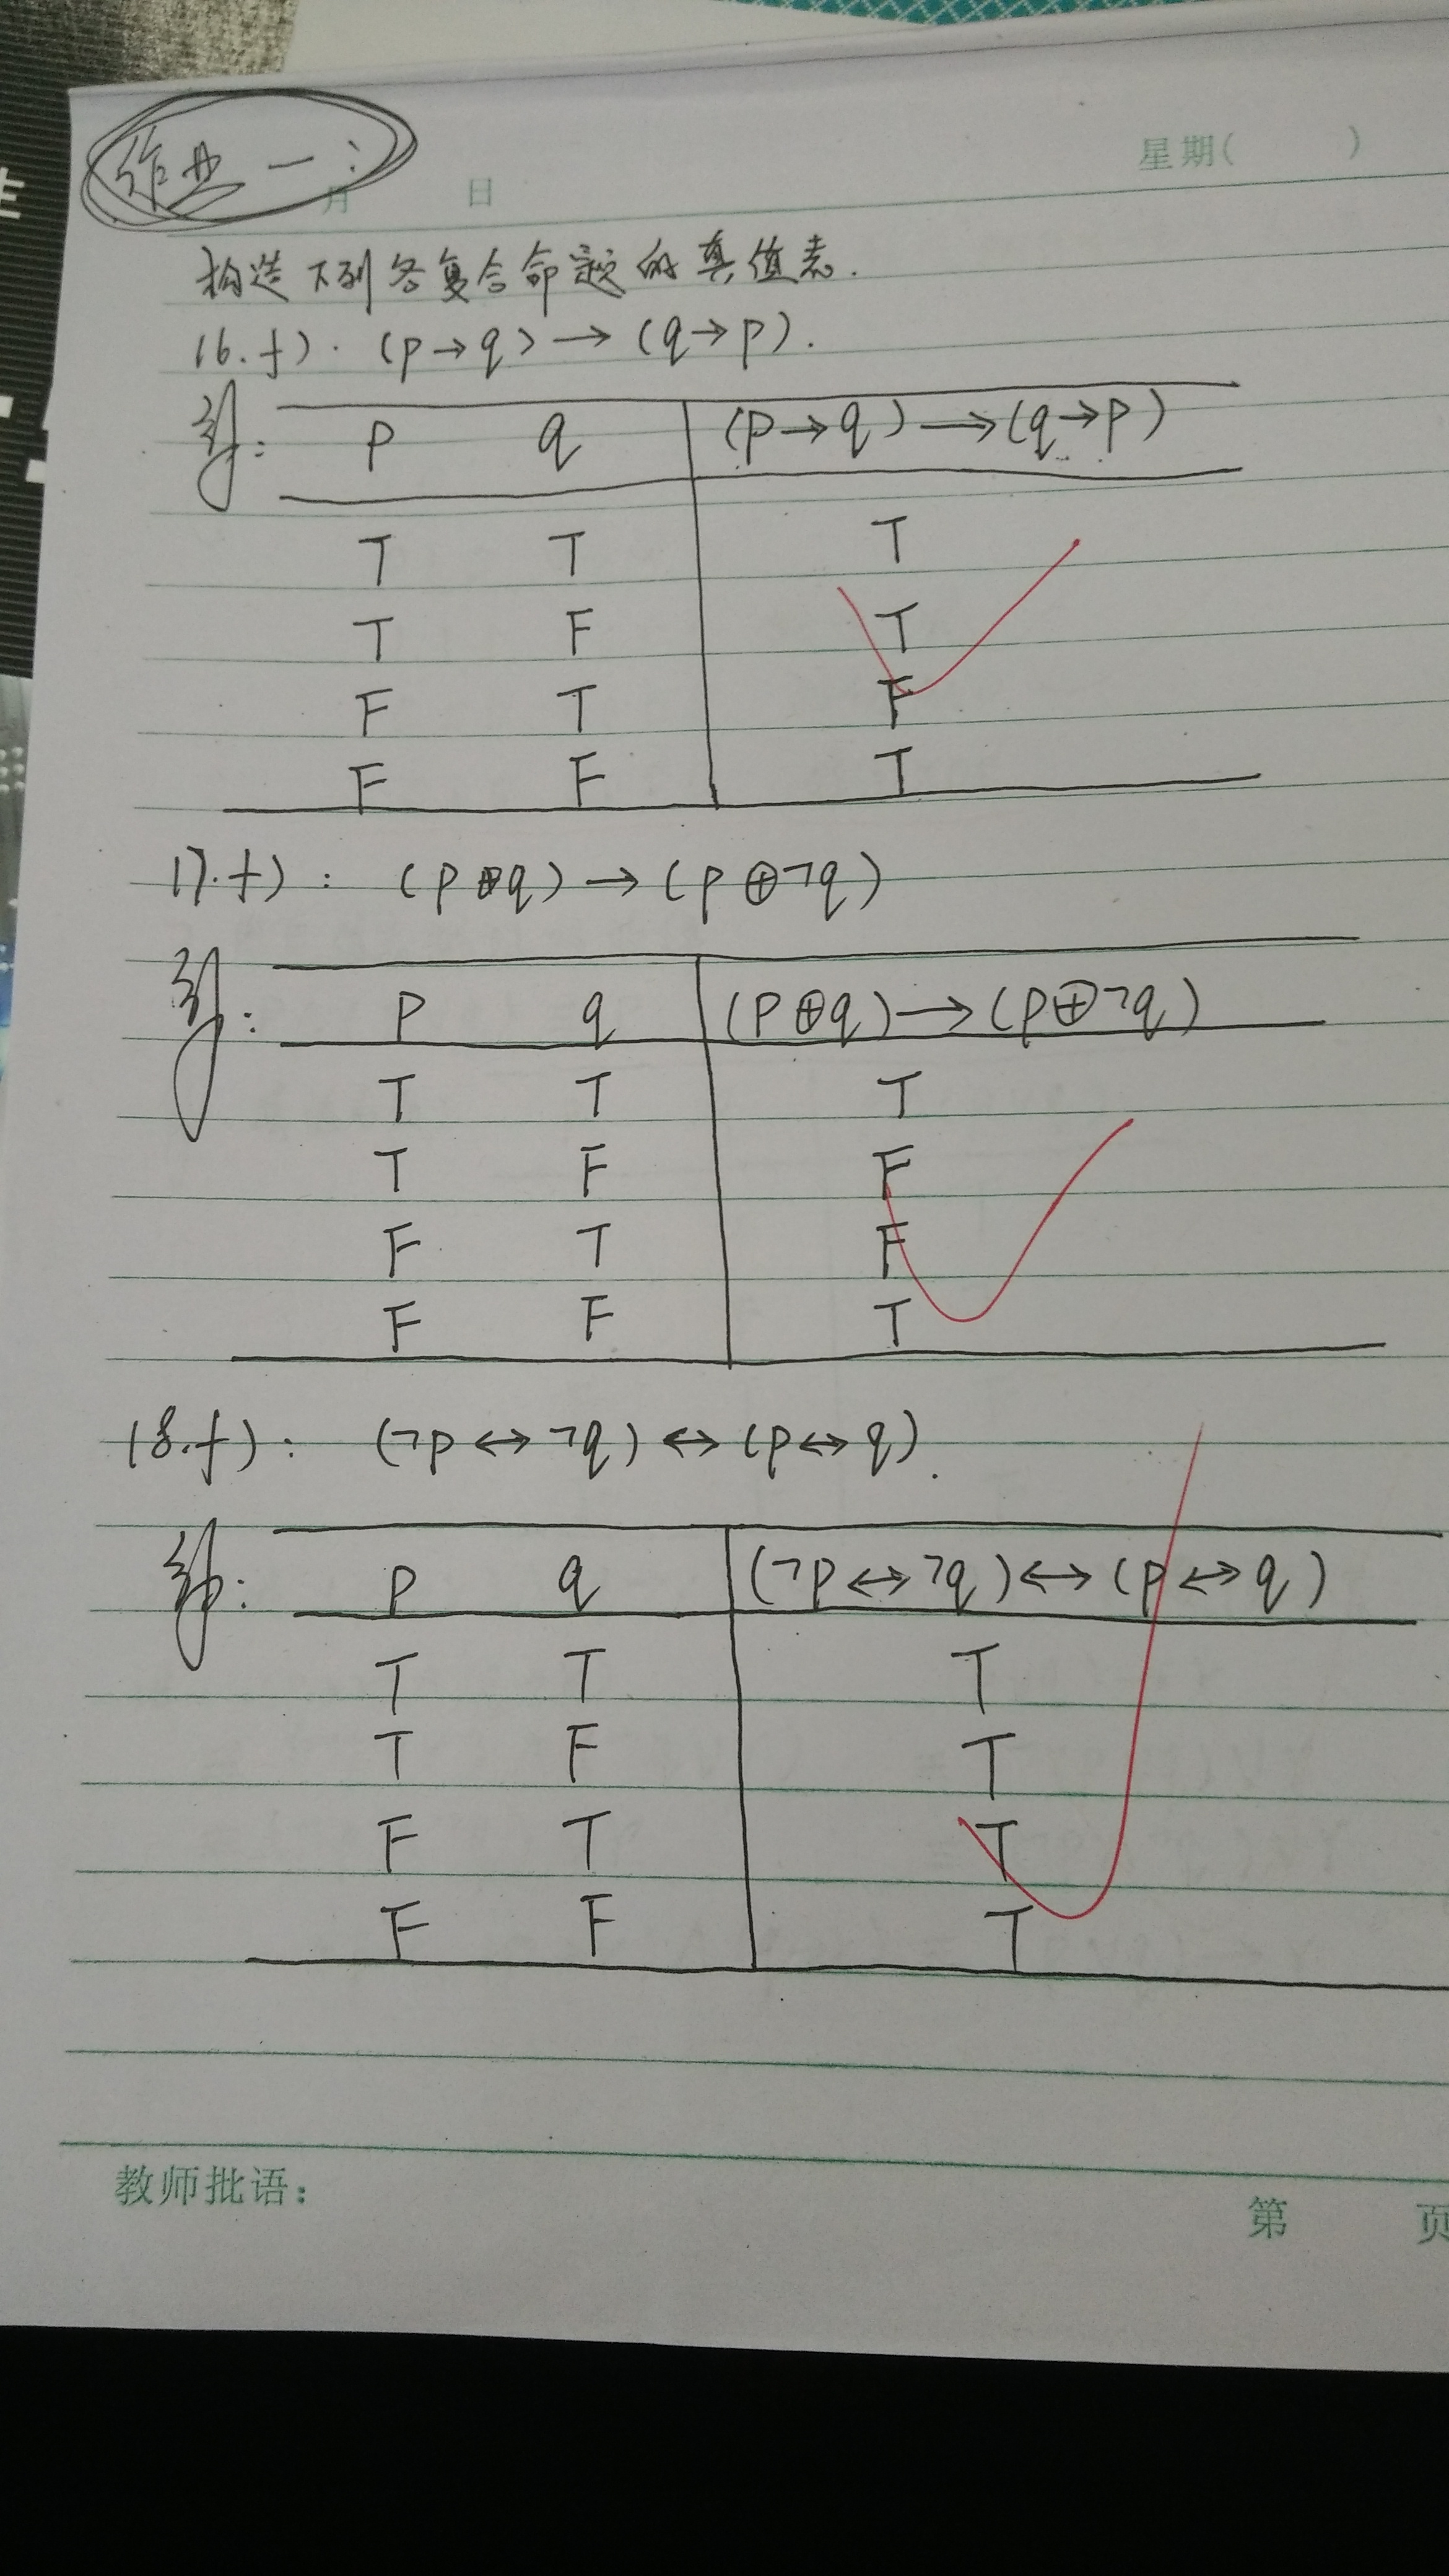 作业一:
星期( )
月 日
构造下列各复合命题的真值表.
16.f). (p→q)→(q→p).
解: p q (p→q)→(q→p)
T T T
T F T
F T F
F F T
17.f): (p⊕q)→(p⊕¬q)
解: p q (p⊕q)→(p⊕¬q)
T T T
T F F
F T F
F F T
18.f): (¬p↔¬q)↔(p↔q).
解: p q (¬p↔¬q)↔(p↔q)
T T T
T F T
F T T
F F T
教师批语:
第 页